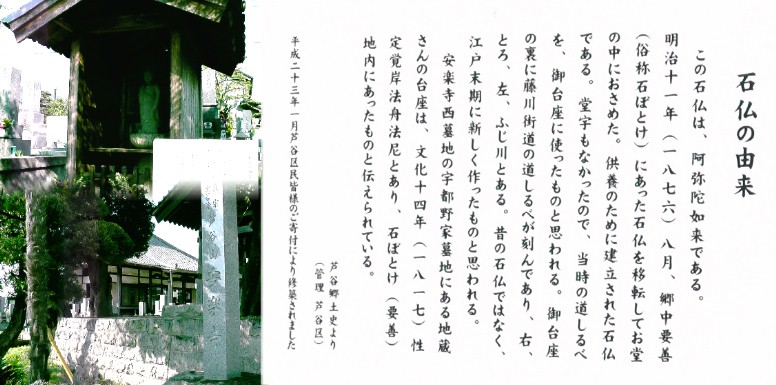 石仏の由来
この石仏は、阿弥陀如来である。
明治十一年（一八七六）八月、郷中要善
（俗称石ぼとけ）にあった石仏を移転してお堂
の中におさめた。供養のために建立された石仏
である。堂宇もなかったので、当時の道しるべ
を、御台座に使ったものと思われる。御台座
の裏に藤川街道の道しるべが刻んであり、右、
とろ、左、ふじ川とある。昔の石仏ではなく、
江戸末期に新しく作ったものと思われる。
安楽寺西墓地の宇都野家墓地にある地蔵
さんの台座は、文化十四年（一八一七）性
定覚岸法舟法尼とあり、石ぼとけ（要善）
地内にあったものと伝えられている。
芦谷郷土史より
（管理 芦谷区）
平成二十三年一月芦谷区民皆様のご寄付により修築されました
安楽寺